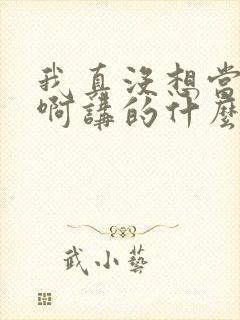 我真沒想當
啊講的什麼
武小藝